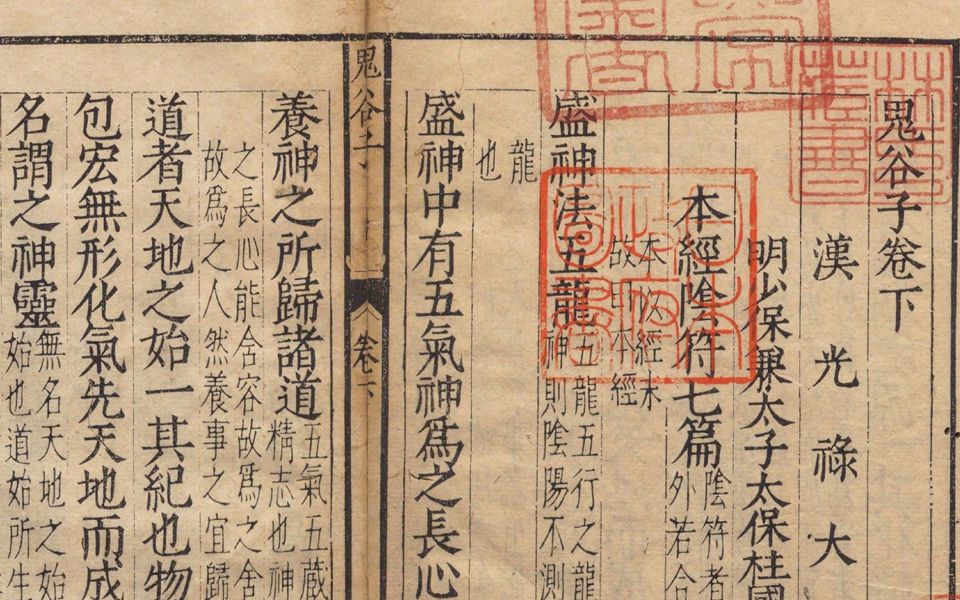 鬼谷子卷下
漢光祿大
明少保兼太子太保柱國
本經陰符七篇
陰符者
外若合
本以經末
故曰本經
盛神法五龍
五龍五行之龍
神則陰陽不測
龍
也
盛神中有五氣神爲之長心
鬼谷子 卷下
養神之所歸諸道
五氣五藏
精志也神
之長心能舍容故爲之舍
故爲之人然養事之宜歸
道者天地之始一其紀也物
包宏無形化氣先天地而成
名謂之神靈
無名天地之始
始也道始所生